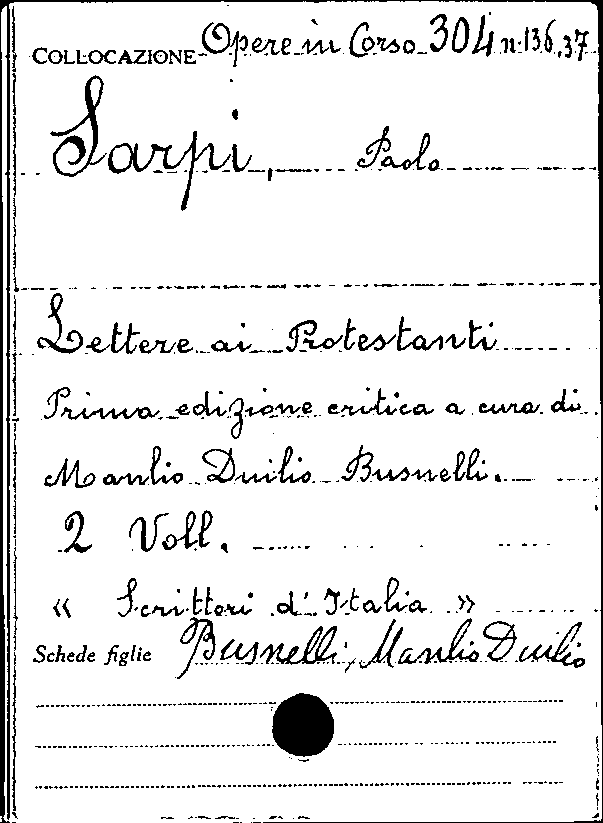 COLLOCAZIONE Opere in Corso 304 n. 136.37
Sarpi, Paolo
Lettere ai Protestanti
Prima edizione critica a cura di
Manlio Duilio Busnelli.
2 Voll.
« Scrittori d'Italia »
Schede figlie Busnelli, Manlio Duilio